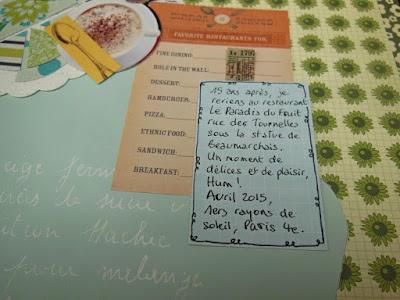 FAVORITE RESTAURANTS FOR
FINE DINING:
HOLE IN THE WALL:
DESSERT:
HAMBURGER:
PIZZA:
ETHNIC FOOD:
SANDWICH:
BREAKFAST:
15 ans après, je
reviens au restaurant
Le Paradis du Fruit
rue des Tournelles
sous la statue de
Beaumarchais.
Un moment de
délices et de plaisir,
Hum !.
Avril 2015,
1ers rayons de
soleil, Paris 4e.
de
Hachez
pour mélange